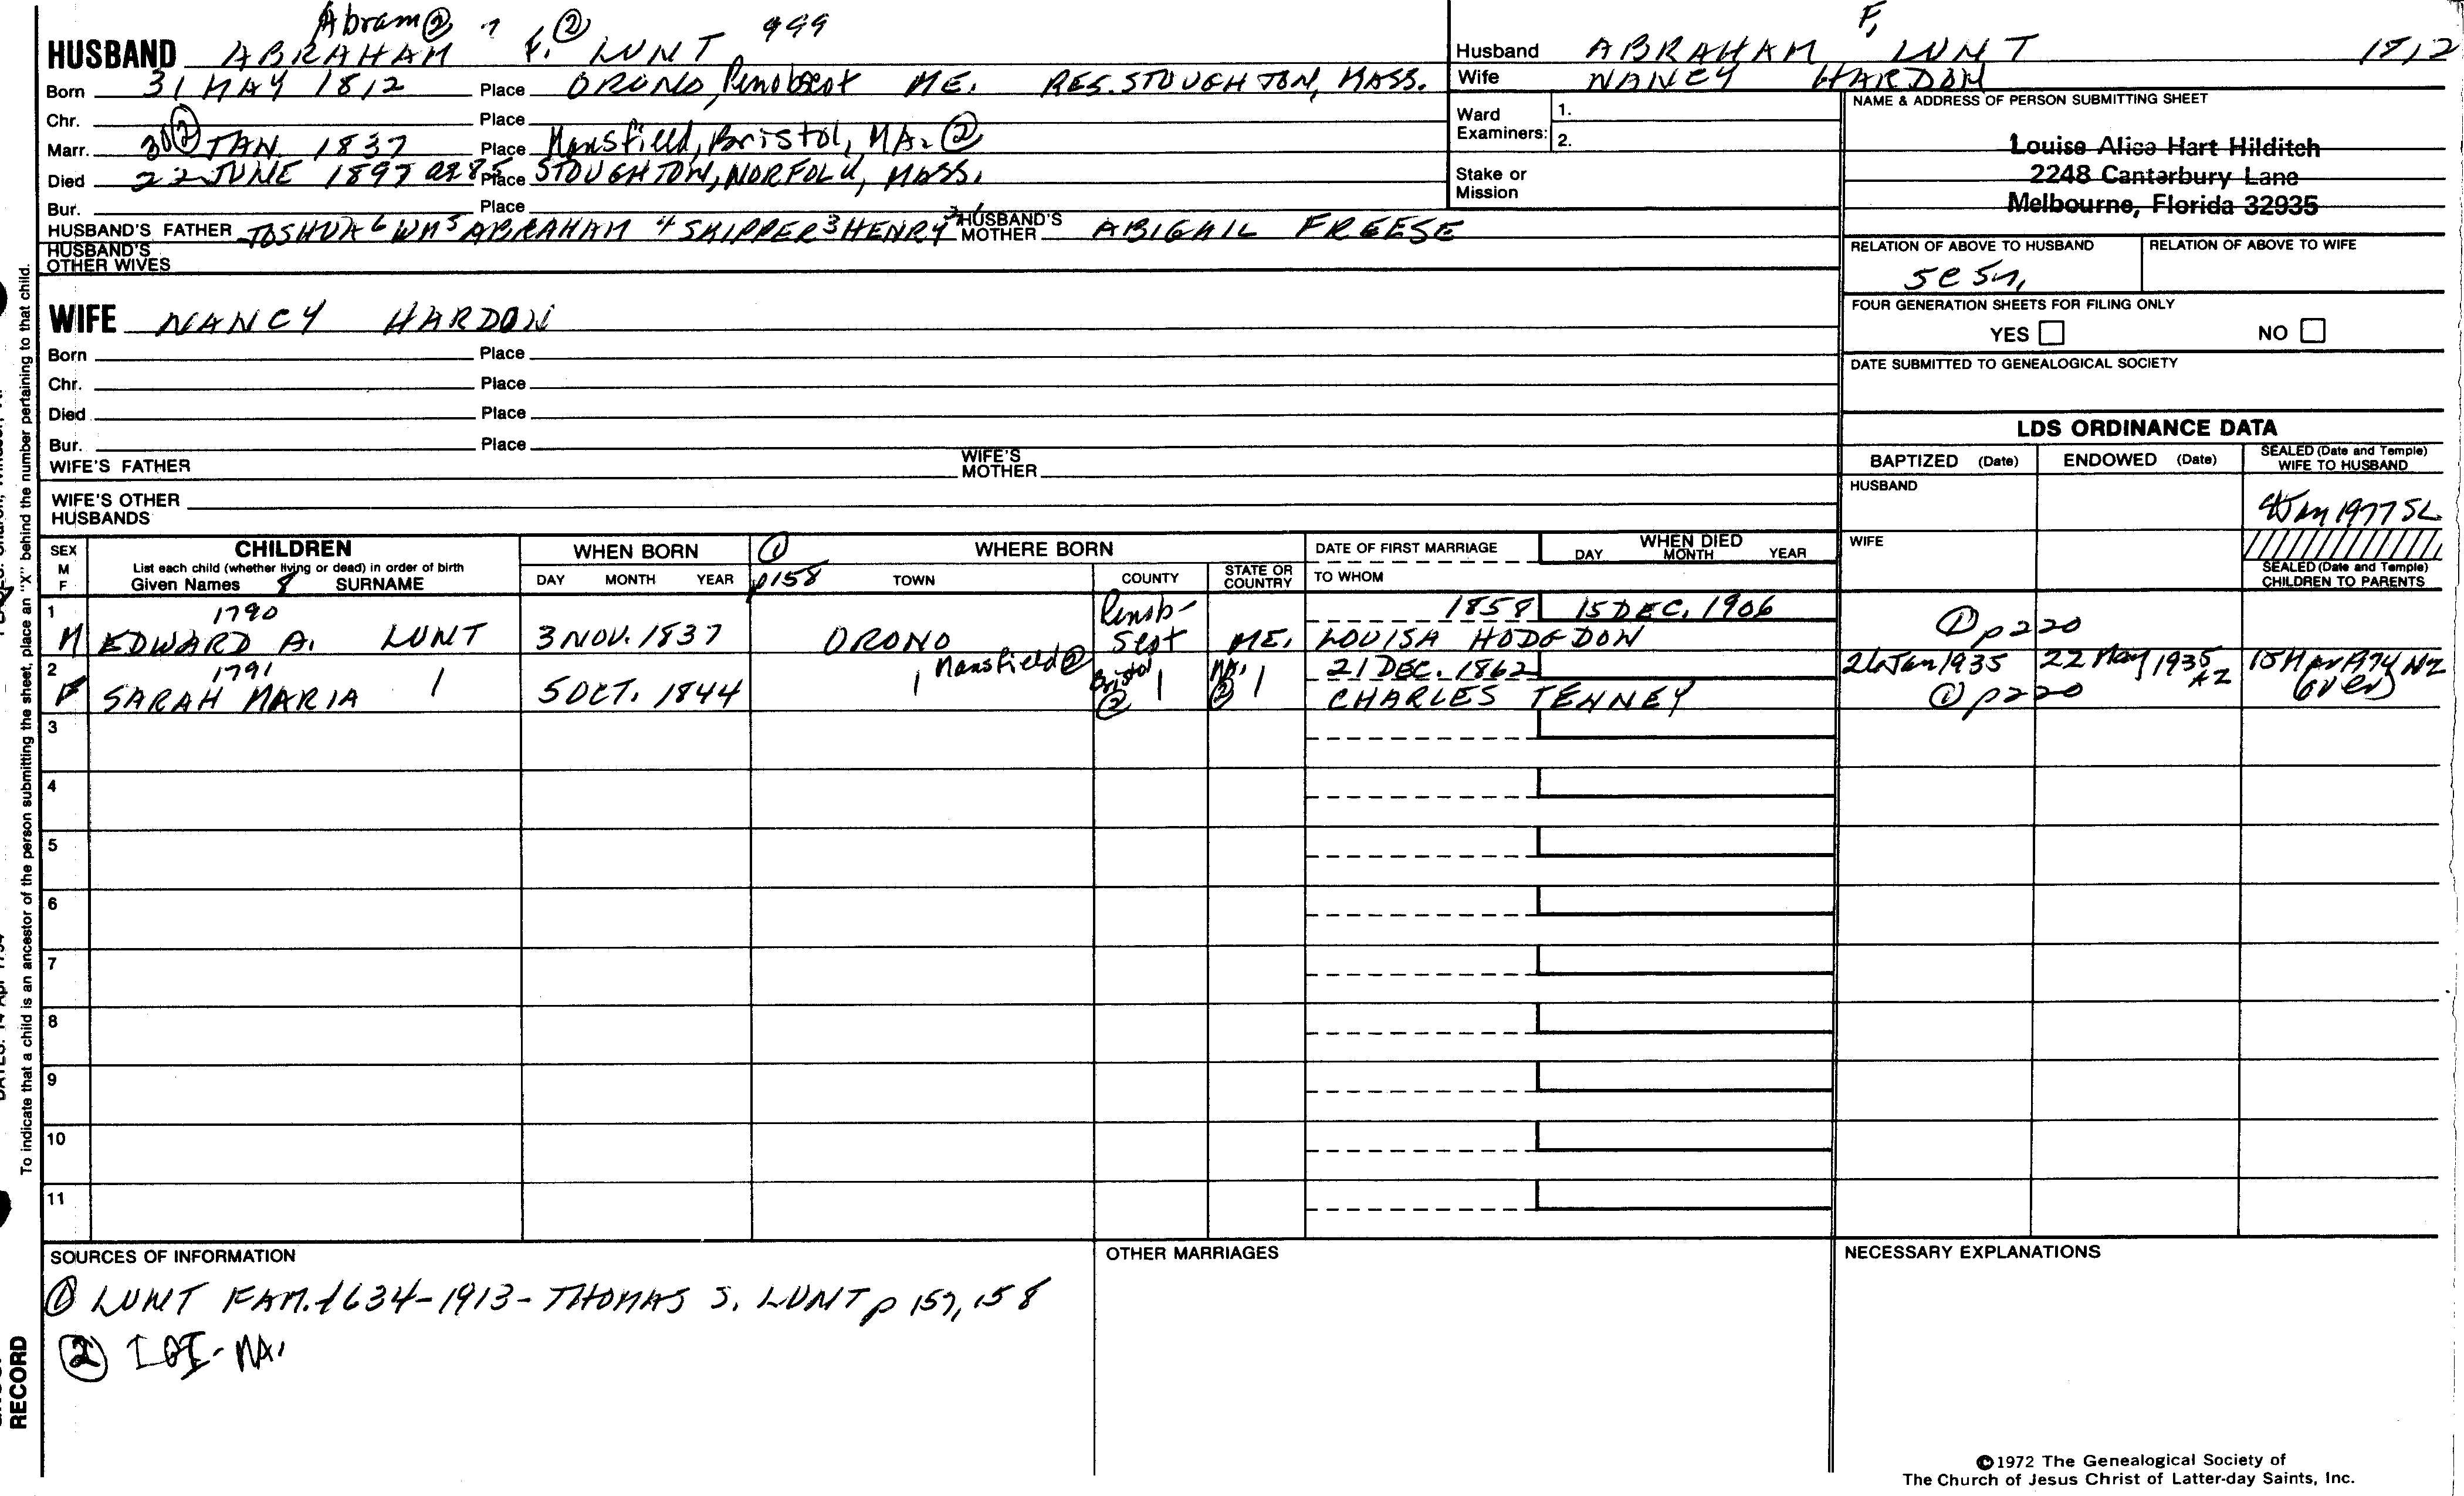 Abram② 7 ② 999
HUSBAND ABRAHAM F. LUNT
Born 31 MAY 1812 Place ORONO, Penobscot ME. RES. STOUGHTON, MASS.
Chr. Place
Marr. 30② JAN. 1837 Place Mansfield, Bristol, MA. ②
Died 22 JUNE 1897 OR 85 Place STOUGHTON, NORFOLK, MASS.
Bur. Place
HUSBAND'S FATHER JOSHUA 6 WM 5 ABRAHAM 4 SKIPPER 3 HENRY 2 HUSBAND'S MOTHER ABIGAIL FREESE
HUSBAND'S OTHER WIVES
Husband ABRAHAM F, LUNT 1812
Wife NANCY HARDON
Ward Examiners: 1.
2.
Stake or Mission
NAME & ADDRESS OF PERSON SUBMITTING SHEET
Louise Alice Hart Hilditch
2248 Canterbury Lane
Melbourne, Florida 32935
RELATION OF ABOVE TO HUSBAND RELATION OF ABOVE TO WIFE
FOUR GENERATION SHEETS FOR FILING ONLY
YES NO
DATE SUBMITTED TO GENEALOGICAL SOCIETY
WIFE NANCY HARDON
Born Place
Chr. Place
Died Place
Bur. Place
WIFE'S FATHER WIFE'S MOTHER
WIFE'S OTHER HUSBANDS
LDS ORDINANCE DATA
BAPTIZED (Date) ENDOWED (Date) SEALED (Date and Temple) WIFE TO HUSBAND
HUSBAND
Jan 1977 SL
WIFE
SEALED (Date and Temple) CHILDREN TO PARENTS
SEX M F
CHILDREN
List each child (whether living or dead) in order of birth
Given Names 8 SURNAME
WHEN BORN
DAY MONTH YEAR
① p158
WHERE BORN
TOWN COUNTY STATE OR COUNTRY
DATE OF FIRST MARRIAGE
TO WHOM
WHEN DIED
DAY MONTH YEAR
1 1790 Penob- 1858 15 DEC. 1906
M EDWARD A. LUNT 3 NOV. 1837 ORONO scot ME. LOUISA HODGDON ① p220
2 1791 Mansfield② Bristol MA. 21 DEC. 1862 26 Jan 1935 22 May 1935 AZ 15 Mar 1974 NZ
F SARAH MARIA 5 OCT. 1844 ② ② CHARLES TENNEY ① p220 (over)
3
4
5
6
7
8
9
10
11
SOURCES OF INFORMATION
① LUNT FAM. 1634-1913- THOMAS S. LUNT p 157, 158
② IGI- MA.
OTHER MARRIAGES
NECESSARY EXPLANATIONS
©1972 The Genealogical Society of
The Church of Jesus Christ of Latter-day Saints, Inc.
To indicate that a child is an ancestor of the person submitting the sheet, place an "X" behind the number pertaining to that child.
RECORD